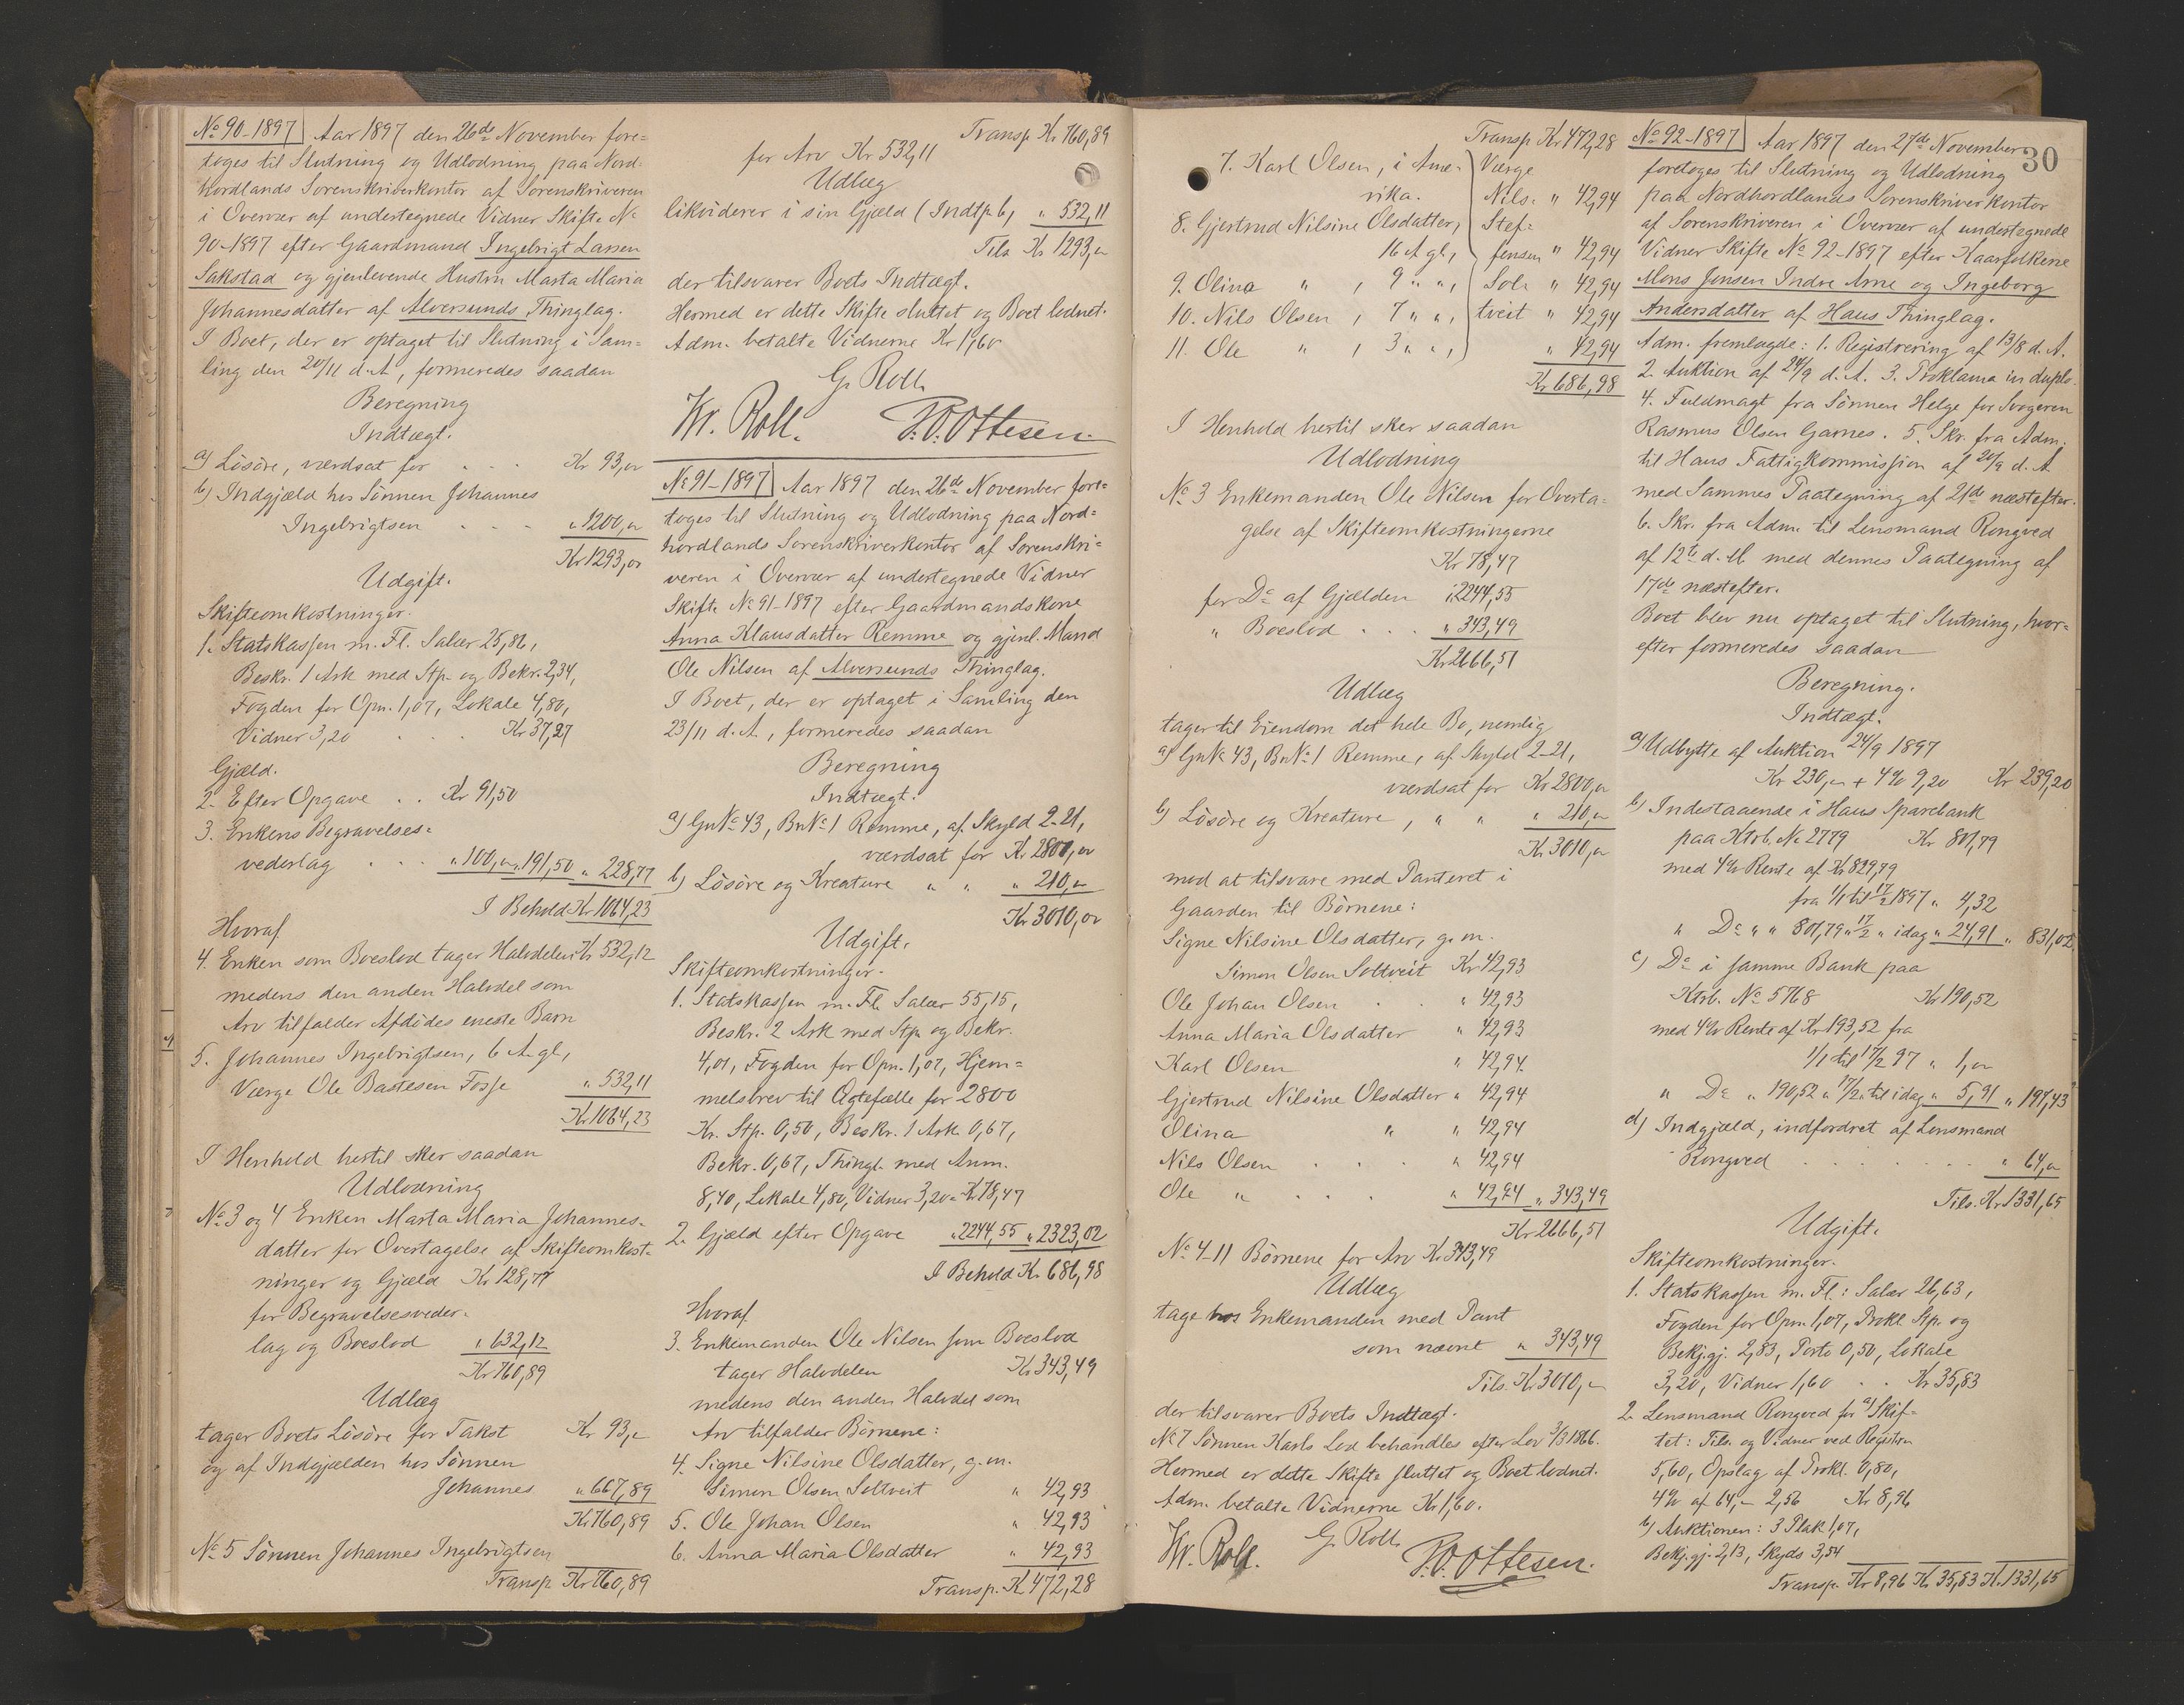 No 90-1897 Aar 1897 den 26de November fore=
toges til Slutning og Udlodning paa Nord-
hordlands Sorenskriverkontor af Sorenskriveren
i Overvær af undertegnede Vidner Skifte No
90-1897 efter Gaardmand Ingebrigt Lassen
Sakstad og gjenlevende Hustru Marta Maria
Johannesdatter af Alversunds Thinglag.
I Boet, der er optaget til Slutning i Sam=
ling den 20/11 d. A., formeredes saadan
Beregning
Indtægt.
a) Løsøre, værdsat for . . . Kr 93,00
b) Indgjæld hos Sønnen Johannes
Ingebrigtsen . . . " 1200,00
Kr 1293,00
Udgift.
Skifteomkostninger.
1. Statskassen m. Fl. Salær 25,86,
Beskr. 1 Ark med Stp. og Bekr. 2,34,
Fogden for Opn. 1,07, Lokale 4,80,
Vidner 3,20 . . . Kr 37,27
Gjæld.
2. Efter Opgave . . Kr 91,50
3. Enkens Begravelses=
vederlag . . . " 100,00 " 191,50 " 228,77
I Behold Kr 1064,23
Hvoraf
4. Enken som Boeslod tager Halvdelen Kr 532,12
medens den anden Halvdel som
Arv tilfalder Afdødes eneste Barn
5. Johannes Ingebrigtsen, 6 A. gl.,
Værge Ole Bastesen Fosse " 532,11
Kr 1064,23
I Henhold hertil sker saadan
Udlodning
No 3 og 4 Enken Marta Maria Johannes-
datter for Overtagelse af Skifteomkost-
ninger og Gjæld Kr 128,77
for Begravelsesveder-
lag og Boeslod " 632,12
Kr 760,89
Udlæg
tager Boets Løsøre for Takst Kr 93,00
og af Indgjælden hos Sønnen
Johannes " 667,89
Kr 760,89
No 5 Sønnen Johannes Ingebrigtsen
Transp Kr 760,89
Transp. Kr 760,89
for Arv Kr 532,11
Udlæg
likviderer i sin Gjæld (Indtp. b) " 532,11
Tils Kr 1293,00
der tilsvarer Boets Indtægt.
Hermed er dette Skifte sluttet og Boet lodnet.
Adm. betalte Vidnerne Kr 1,60
G. Roll.
Kr. Roll. P.O. Ottesen.
No 91-1897 Aar 1897 den 26de November fore=
toges til Slutning og Udlodning paa Nord=
hordlands Sorenskriverkontor af Sorenskri=
veren i Overvær af undertegnede Vidner
Skifte No 91-1897 efter Gaardmandskone
Anna Klausdatter Remme og gjenl. Mand
Ole Nilsen af Alversunds Thinglag.
I Boet, der er optaget i Samling den
23/11 d. A., formeredes saadan
Beregning
Indtægt.
a) GnNo 43, BnNo 1 Remme, af Skyld 2-21,
værdsat for Kr 2800,00
b) Løsøre og Kreature " " " 210,00
Kr 3010,00
Udgift.
Skifteomkostninger.
1. Statskassen m. Fl. Salær 55,15,
Beskr. 2 Ark med Stp. og Bekr.
4,01, Fogden for Opn. 1,07, Hjem=
melsbrev til Ægtefælle for 2800
Kr. Stp. 0,50, Beskr. 1 Ark 0,67,
Bekr. 0,67, Thingl. med Anm.
8,40, Lokale 4,80, Vidner 3,20 = Kr 78,47
2. Gjæld efter Opgave " 2244,55 " 2323,02
I Behold Kr. 686,98
Hvoraf
3. Enkemanden Ole Nilsen som Boeslod
tager Halvdelen Kr 343,49
medens den anden Halvdel som
Arv tilfalder Børnene:
4. Signe Nilsine Olsdatter, g. m.
Simon Olsen Soltveit " 42,93
5. Ole Johan Olsen " 42,93
6. Anna Maria Olsdatter " 42,93
Transp. Kr 472,28
Transp Kr 472,28
7. Karl Olsen, i Ame- Værge
rika. Nils- " 42,94
8. Gjertrud Nilsine Olsdatter, Stef-
16 A gl, fensen " 42,94
9. Olina " , 9 " ", Solt " 42,94
10. Nils Olsen , 7 " ", tveit " 42,94
11. Ole " , 3 " ", " 42,94
Kr 686,98
I Henhold hertil sker saadan
Udlodning
No 3 Enkemanden Ole Nilsen for Overta-
gelse af Skifteomkostningerne
Kr 78,47
for Do af Gjælden " 2244,55
" Boeslod . . . " 343,49
Kr 2666,51
Udlæg
tager til Eiendom det hele Bo, nemlig
a) GnNo 43, BnNo 1 Remme, af Skyld 2-21,
værdsat for Kr 2800,00
b) Løsøre og Kreature, " " " 210,00
Kr 3010,00
mod at tilsvare med Panteret i
Gaarden til Børnene:
Signe Nilsine Olsdatter, g. m.
Simon Olsen Soltveit Kr 42,93
Ole Johan Olsen . " 42,93
Anna Maria Olsdatter " 42,93
Karl Olsen " 42,94
Gjertrud Nilsine Olsdatter " 42,94
Olina " " 42,94
Nils Olsen . . . " 42,94
Ole " . . . " 42,94 " 343,49
Kr 2666,51
No 4-11 Børnene for Arv Kr 343,49
Udlæg
tage hos Enkemanden med Pant
som nævnt " 343,49
Tils. Kr 3010,00
der tilsvarer Boets Indtægt.
No 7 Sønnen Karls Lod behandles efter Lov 3/3 1866.
Hermed er dette Skifte sluttet og Boet lodnet.
Adm. betalte Vidnerne Kr 1,60.
G. Roll.
Kr. Roll. P.O. Ottesen.
30
No 92-1897 Aar 1897 den 27de November
foretoges til Slutning og Udlodning
paa Nordhordlands Sorenskriverkontor
af Sorenskriveren i Overvær af undertegnede
Vidner Skifte No 92-1897 efter Kaarfolkene
Mons Jonsen Indre Arne og Ingeborg
Andersdatter af Haus Thinglag.
Adm. fremlagde: 1. Registrering af 13/8 d. A.
2. Auktion af 24/9 d. A. 3. Proklama in duplo.
4. Fuldmagt fra Sønnen Helge for Svogeren
Rasmus Olsen Garnes. 5. Skr. fra Adm.
til Haus Fattigkommission af 20/9 d. A
med Sammes Paategning af 21de næstefter.
6. Skr. fra Adm. til Lensmand Rongved
af 12te d. M med dennes Paategning af
17de næstefter.
Boet blev nu optaget til Slutning, hvor=
efter formeredes saadan
Beregning.
Indtægt.
a) Udbytte af Auktion 24/9 1897
Kr 230,00 + 4% 9,20 Kr 239,20
b) Indestaaende i Haus Sparebank
paa Ktrb. No 2779 Kr 801,79
med 4% Rente af Kr 829,79
fra 1/1 til 17/2 1897 " 4,32
" Do " " 801,79 " 17/2 " idag " 24,91 " 831,02
c) Do i samme Bank paa
Ktrb. No 5768 Kr 190,52
med 4% Rente af Kr 193,52 fra
1/1 til 17/2 97 " 1,00
" Do " 190,52 " 17/2 " til idag " 5,91 " 197,43
d) Indgjæld, indfordret af Lensmand
Rongved . . . " 64,00
Tils. Kr 1331,65
Udgift.
Skifteomkostninger.
1. Statskassen m. Fl.: Salær 26,63,
Fogden for Opn. 1,07, Prokl. Stp. og
Bekj.gj. 2,83, Porto 0,50, Lokale
3,20, Vidner 1,60 . . Kr 35,83
2. Lensmand Rongved for a) Skif=
tet: Tils. og Vidner ved Registrn
5,60, Opslag af Prokl. 0,80,
4% af 64,00 2,56 Kr 8,96
b) Auktionen: 3 Plak. 1,07,
Bekj.gj. 2,13, Skyds 3,54
Transp. Kr 8,96 Kr 35,83 Kr 1331,65